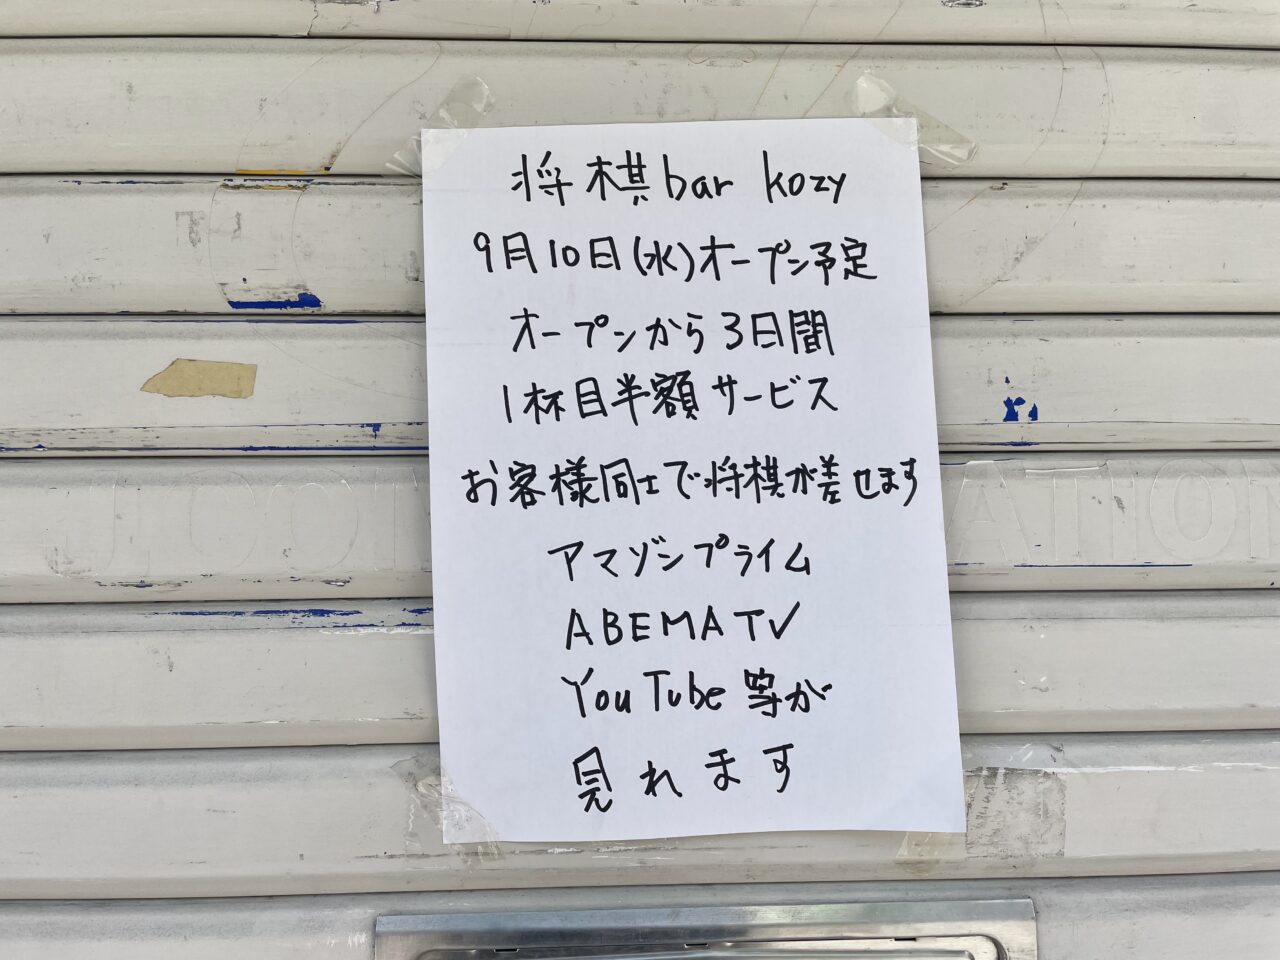 将棋bar kozy
9月10日(水)オープン予定
オープンから3日間
1杯目半額サービス
お客様同士で将棋が差せます
アマゾンプライム
ABEMATV
YouTube等が
見れます